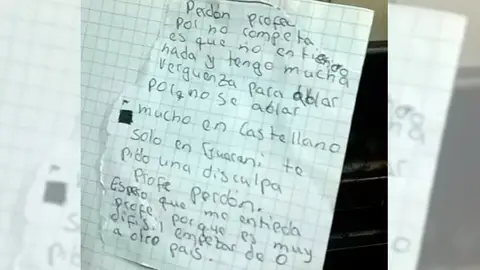 Perdón profe
por no competa
es que no entiendo
nada y tengo mucha
verguenza para ablar
porqno se ablar
mucho en Castellano
solo en Guarani te
pido una disculpa
profe perdón.
Espero que me entieda
profe, porque es muy
difisil empezar de 0
a otro pais.